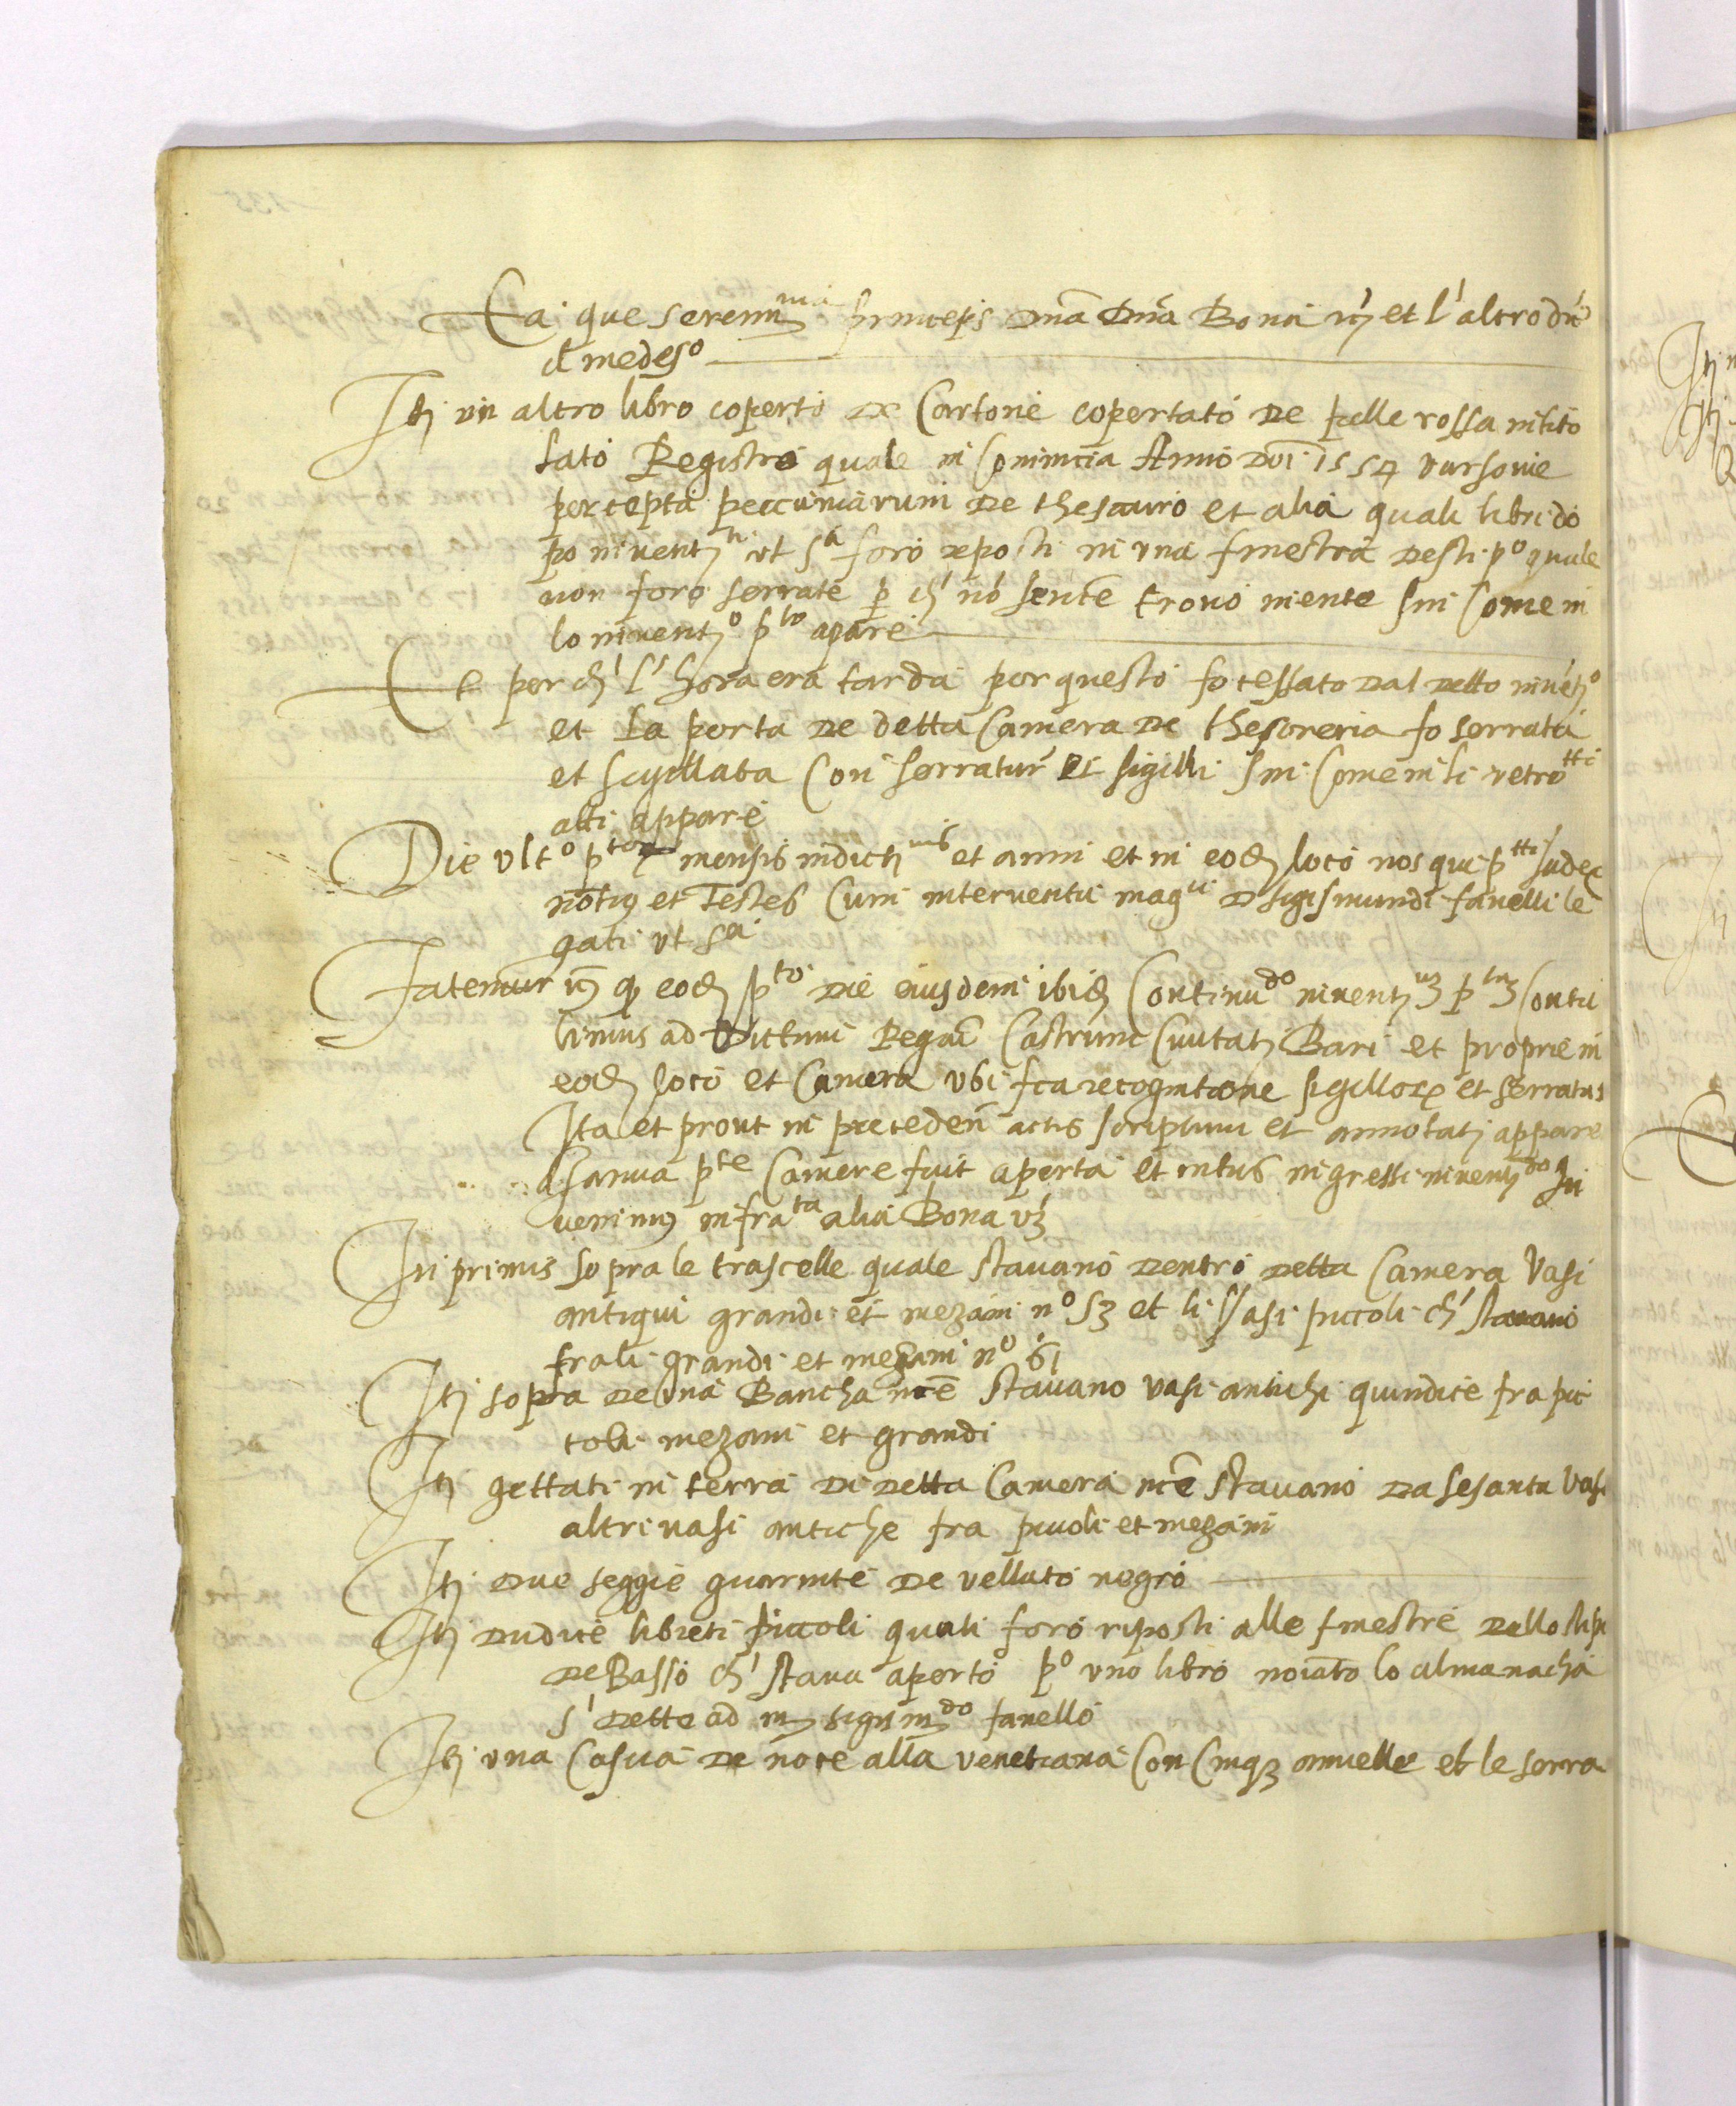 Ea que Sereniss ma princeps Dña Dña Bona vz et l'altro du
el medeso
Itē un altro libro coperto de Cartone copertato de pelle rossa intito
lato Registro quale in Comincia Anno Dni 1554 varsovie
percepta peccuniarum de thesauro et alia quali libri do
po inventti ut sa foro reposti in una finestra desti po quale
non foro serrate p ch' no sence trovo niente sin Come in
lo invento pto apare
Et per ch' l'hora era tarda per questo fo cessato dal detto invēto
et la porta de detta Camera de thesoreria fo serrata
et sigillata Con serratur et sigilli sin Come in li retrotti
atti appare
Die ulto pto mensis indictnis et anni et in eod loco nos qui ptti Judex
notus et Testes Cum interventu magci D sigismundi fanelli le
gati ut sa
Fatemur vz q eod pto die eiusdem ibid Continudo inventum ptum Contu
limus ad Dictum Regium Castrum Civitatis Bari et proprie in
eod loco et Camera ubi fca recognitione sigillorum et serratus
Ita et prout in preceden actis scriptum et annotatj appare
Janua pte Camere fuit aperta et intus ingressi inventdo In
venimus infrata alia Bona vz
In primis sopra le trascelle quale stavano dentro detta Camera Vasi
antiqui grandi et mezani no 53 et li Vasi piccoli ch' stavano
fra li grandi et mezani no 61
Itē sopra de una Bancha nce stavano vasi antichi quindice fra pic
coli mezani et grandi
Itē gettati in terra di detta Camera nce stavano da sesanta Vasi
altri vasi antiche fra piccoli et mezani
Itē due seggie guarnite de vellato negro
Itē dudice libreti piccoli quali foro riposti alle finestre dello stipo
de Basso ch' stava aperto po uno libro noiato lo almanacha
s' dette ad m sigismdo fanello
Itē una Cascia de noce alla venetiana Con Cinq3 anvelle et le serra